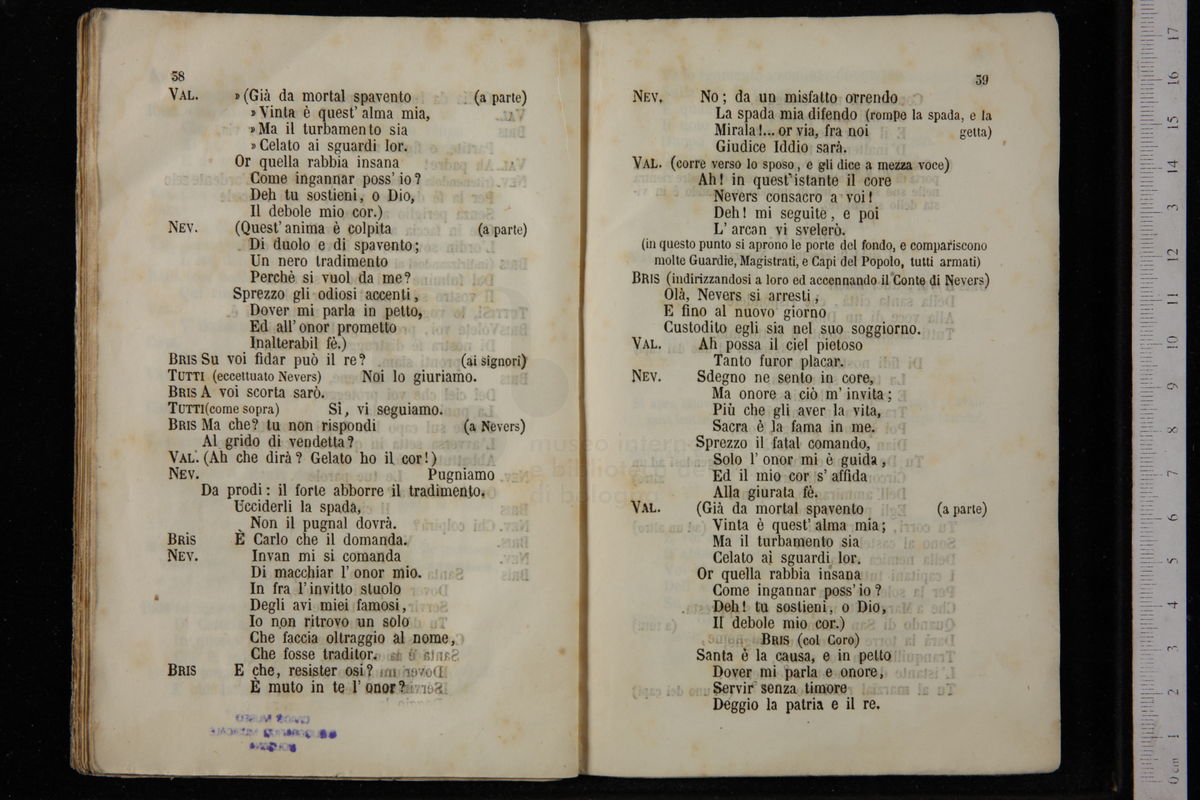 38
VAL. »(Già da mortal spavento (a parte)
»Vinta è quest' alma mia,
»Ma il turbamento sia
»Celato ai sguardi lor.
Or quella rabbia insana
Come ingannar poss' io?
Deh tu sostieni, o Dio,
Il debole mio cor.)
NEV. (Quest' anima è colpita (a parte)
Di duolo e di spavento;
Un nero tradimento
Perchè si vuol da me?
Sprezzo gli odiosi accenti,
Dover mi parla in petto,
Ed all' onor prometto
Inalterabil fè.)
BRIS Su voi fidar può il re? (ai signori)
TUTTI (eccettuato Nevers) Noi lo giuriamo.
BRIS A voi scorta sarò.
TUTTI (come sopra) Sì, vi seguiamo.
BRIS Ma che? tu non rispondi (a Nevers)
Al grido di vendetta?
VAL. (Ah che dirà? Gelato ho il cor!)
NEV. Pugniamo
Da prodi: il forte abborre il tradimento.
Ucciderli la spada,
Non il pugnal dovrà.
BRIS È Carlo che il domanda.
NEV. Invan mi si comanda
Di macchiar l' onor mio.
In fra l' invitto stuolo
Degli avi miei famosi,
Io non ritrovo un solo
Che faccia oltraggio al nome,
Che fosse traditor.
BRIS E che, resister osi?
È muto in te l' onor?
39
NEV. No; da un misfatto orrendo
La spada mia difendo (rompe la spada, e la
Mirala!... or via, fra noi getta)
Giudice Iddio sarà.
VAL. (corre verso lo sposo, e gli dice a mezza voce)
Ah! in quest' istante il core
Nevers consacro a voi!
Deh! mi seguite, e poi
L' arcan vi svelerò.
(in questo punto si aprono le porte del fondo, e compariscono
molte Guardie, Magistrati, e Capi del Popolo, tutti armati)
BRIS (indirizzandosi a loro ed accennando il Conte di Nevers)
Olà, Nevers si arresti,
E fino al nuovo giorno
Custodito egli sia nel suo soggiorno.
VAL. Ah possa il ciel pietoso
Tanto furor placar.
NEV. Sdegno ne sento in core,
Ma onore a ciò m' invita;
Più che gli aver la vita,
Sacra è la fama in me.
Sprezzo il fatal comando,
Solo l' onor mi è guida,
Ed il mio cor s' affida
Alla giurata fè.
VAL. (Già da mortal spavento (a parte)
Vinta è quest' alma mia;
Ma il turbamento sia
Celato ai sguardi lor.
Or quella rabbia insana
Come ingannar poss' io?
Deh! tu sostieni, o Dio,
Il debole mio cor.)
BRIS (col Coro)
Santa è la causa, e in petto
Dover mi parla e onore,
Servir senza timore
Deggio la patria e il re.